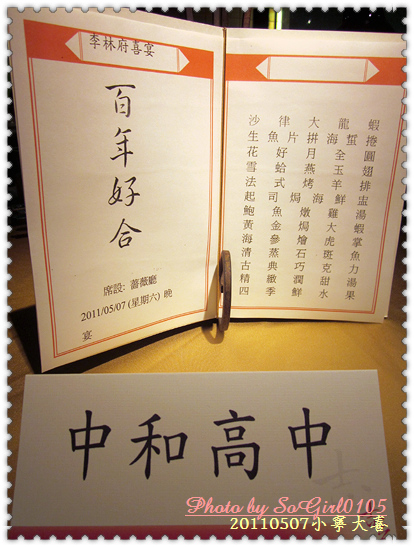 李林府喜宴
百年好合
席設: 薔薇廳
2011/05/07 (星期六) 晚
宴
沙律大龍蝦
生魚片拼海蜇捲
花好月全圓
雪蛤燕玉翅
法式烤羊排
起司焗海鮮盅
鮑魚燉雞湯
黃金焗大蝦
海參燴虎掌
清蒸石斑魚
古典巧克力
精緻潤甜湯
四季鮮水果
中和高中
Photo by SoGirl0105
20110507小寧大喜